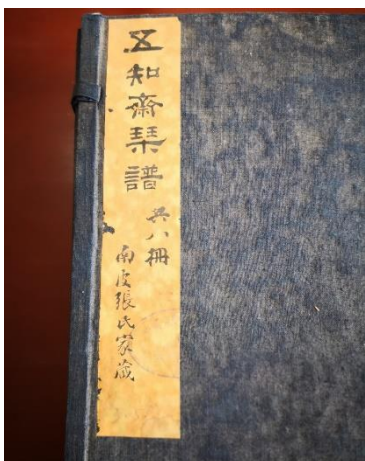 五知齋琴譜
共八冊
南皮張氏家藏